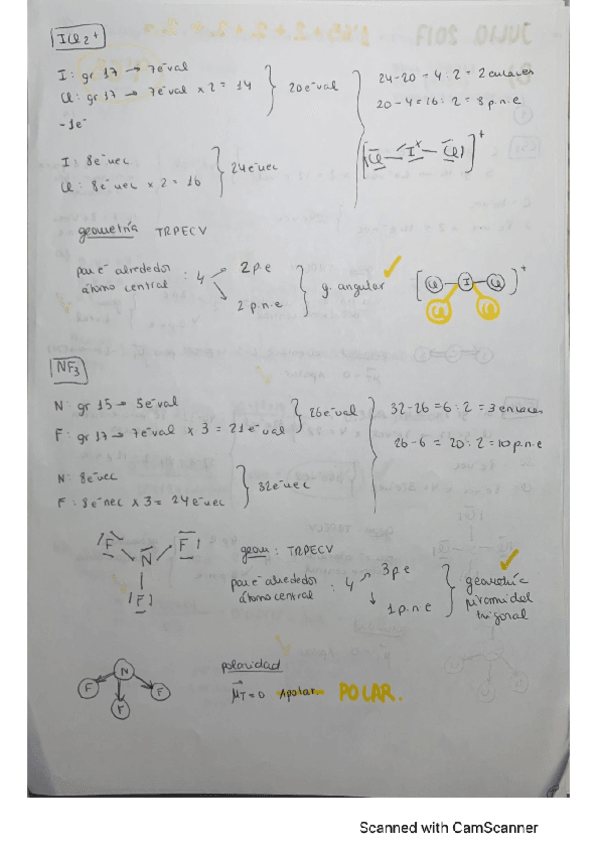 ICl2+
I: gr 17 → 7e-val
Cl: gr 17 → 7e-val x 2 = 14
-1e-
20e-val
24-20 = 4 : 2 = 2 enlaces
20-4=16 : 2 = 8 p.n.e
I: 8e-nec
Cl: 8e-nec x 2 = 16
24e-nec
[Cl — I — Cl]+
geometría TRPECV
par e- alrededor átomo central : 4
2 p.e
2 p.n.e
g. angular
[Cl I Cl]+
Cl Cl
NF3
N: gr 15 → 5e-val
F: gr 17 → 7e-val x 3 = 21 e-val
26e-val
32-26 = 6 : 2 = 3 enlaces
26-6 = 20 : 2 = 10 p.n.e
N: 8e-nec
F: 8e-nec x 3 = 24 e-nec
32e-nec
F N F
F
geom : TRPECV
par e- alrededor átomo central : 4
3 p.e
1 p.n.e
geometría piramidal trigonal
N
F F F
polaridad
μT = 0 Apolar. POLAR.
JULIO 2017
Scanned with CamScanner